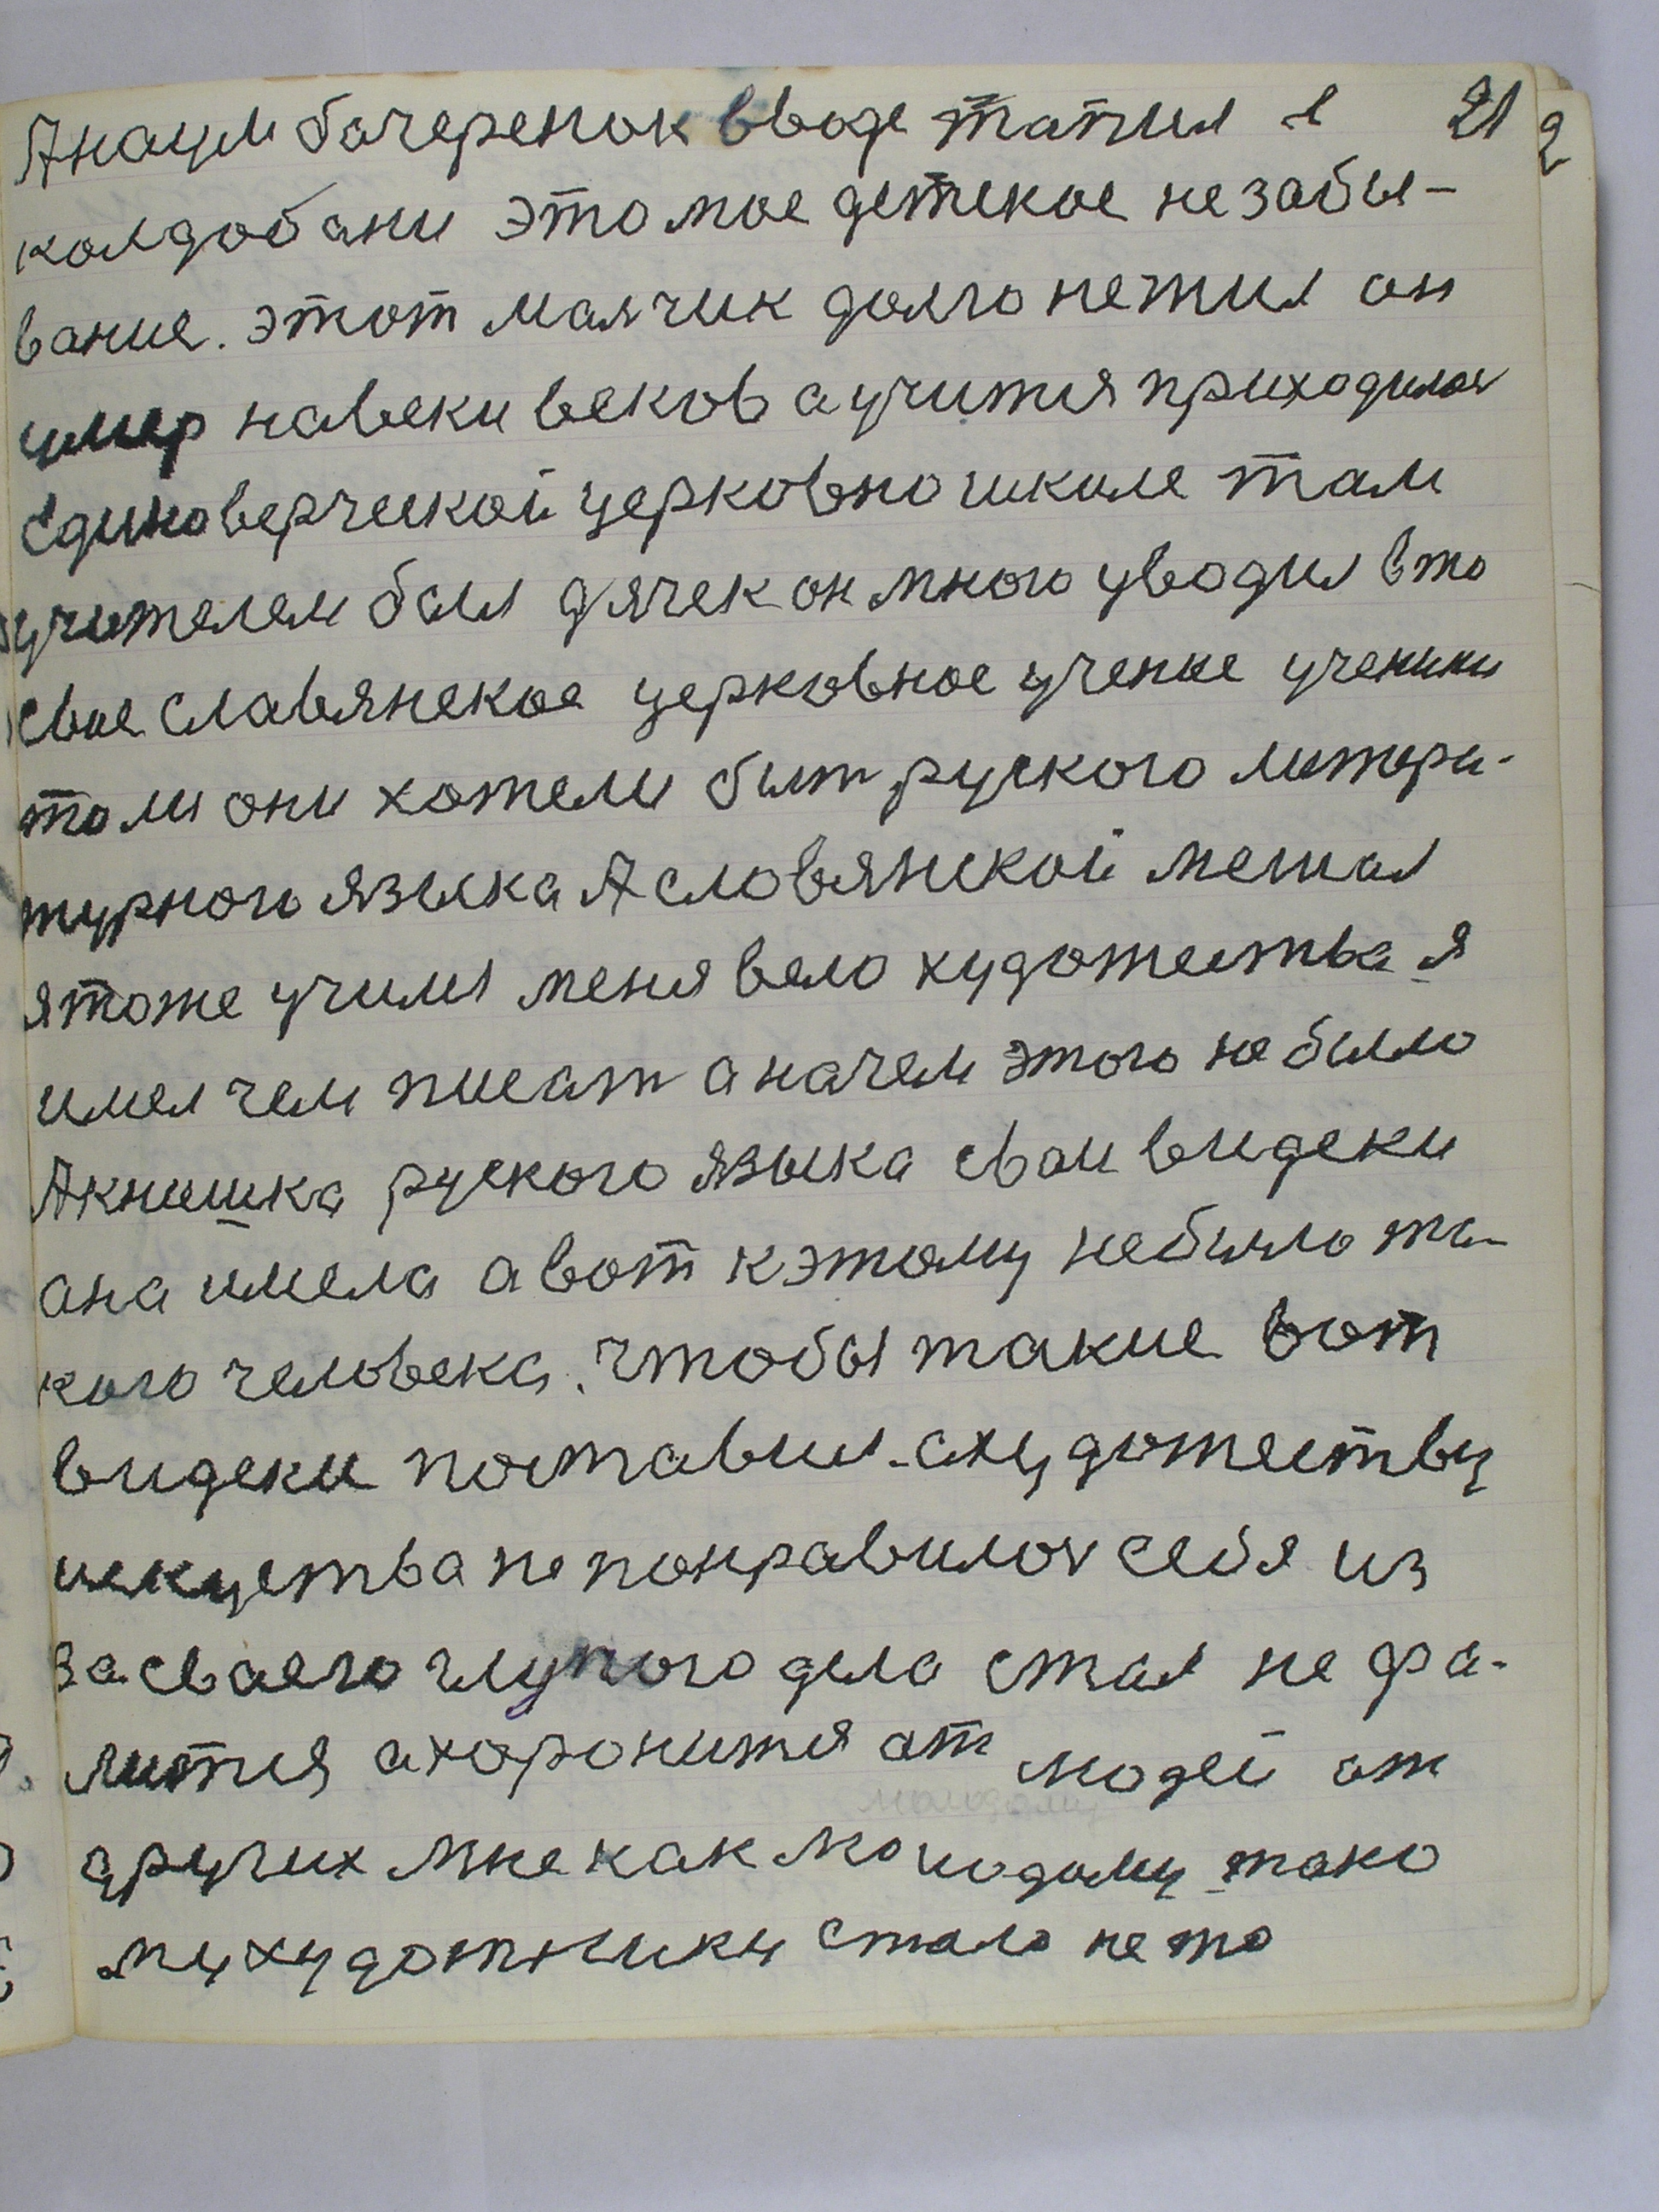 Анацли бочеренок вводе тапил в 21
колдобани это мое детское не забы-
вание. этот малчик долго нежил он
умер навеки веков а учится приходилос
Единоверческой церковно школе там
учителем был дячек он много уводил в то
свое славянское церковное учение ученики
то ли они хотели быт руского литера-
турного языка А словянской мешал
я тоже учился меня вело художества я
имел чем писат а на чем этого не было
А книшка руского языка свои видеки
ана имела а вот к этому небыло та-
кого человека. Чтобы такие вот
видеки поставил. а художеству
искуства не понравилос себя из
за сваего глупого дела стал не фа-
лится а хоронится ат людей ат
других мне как молодому тако
му художнику стало не то